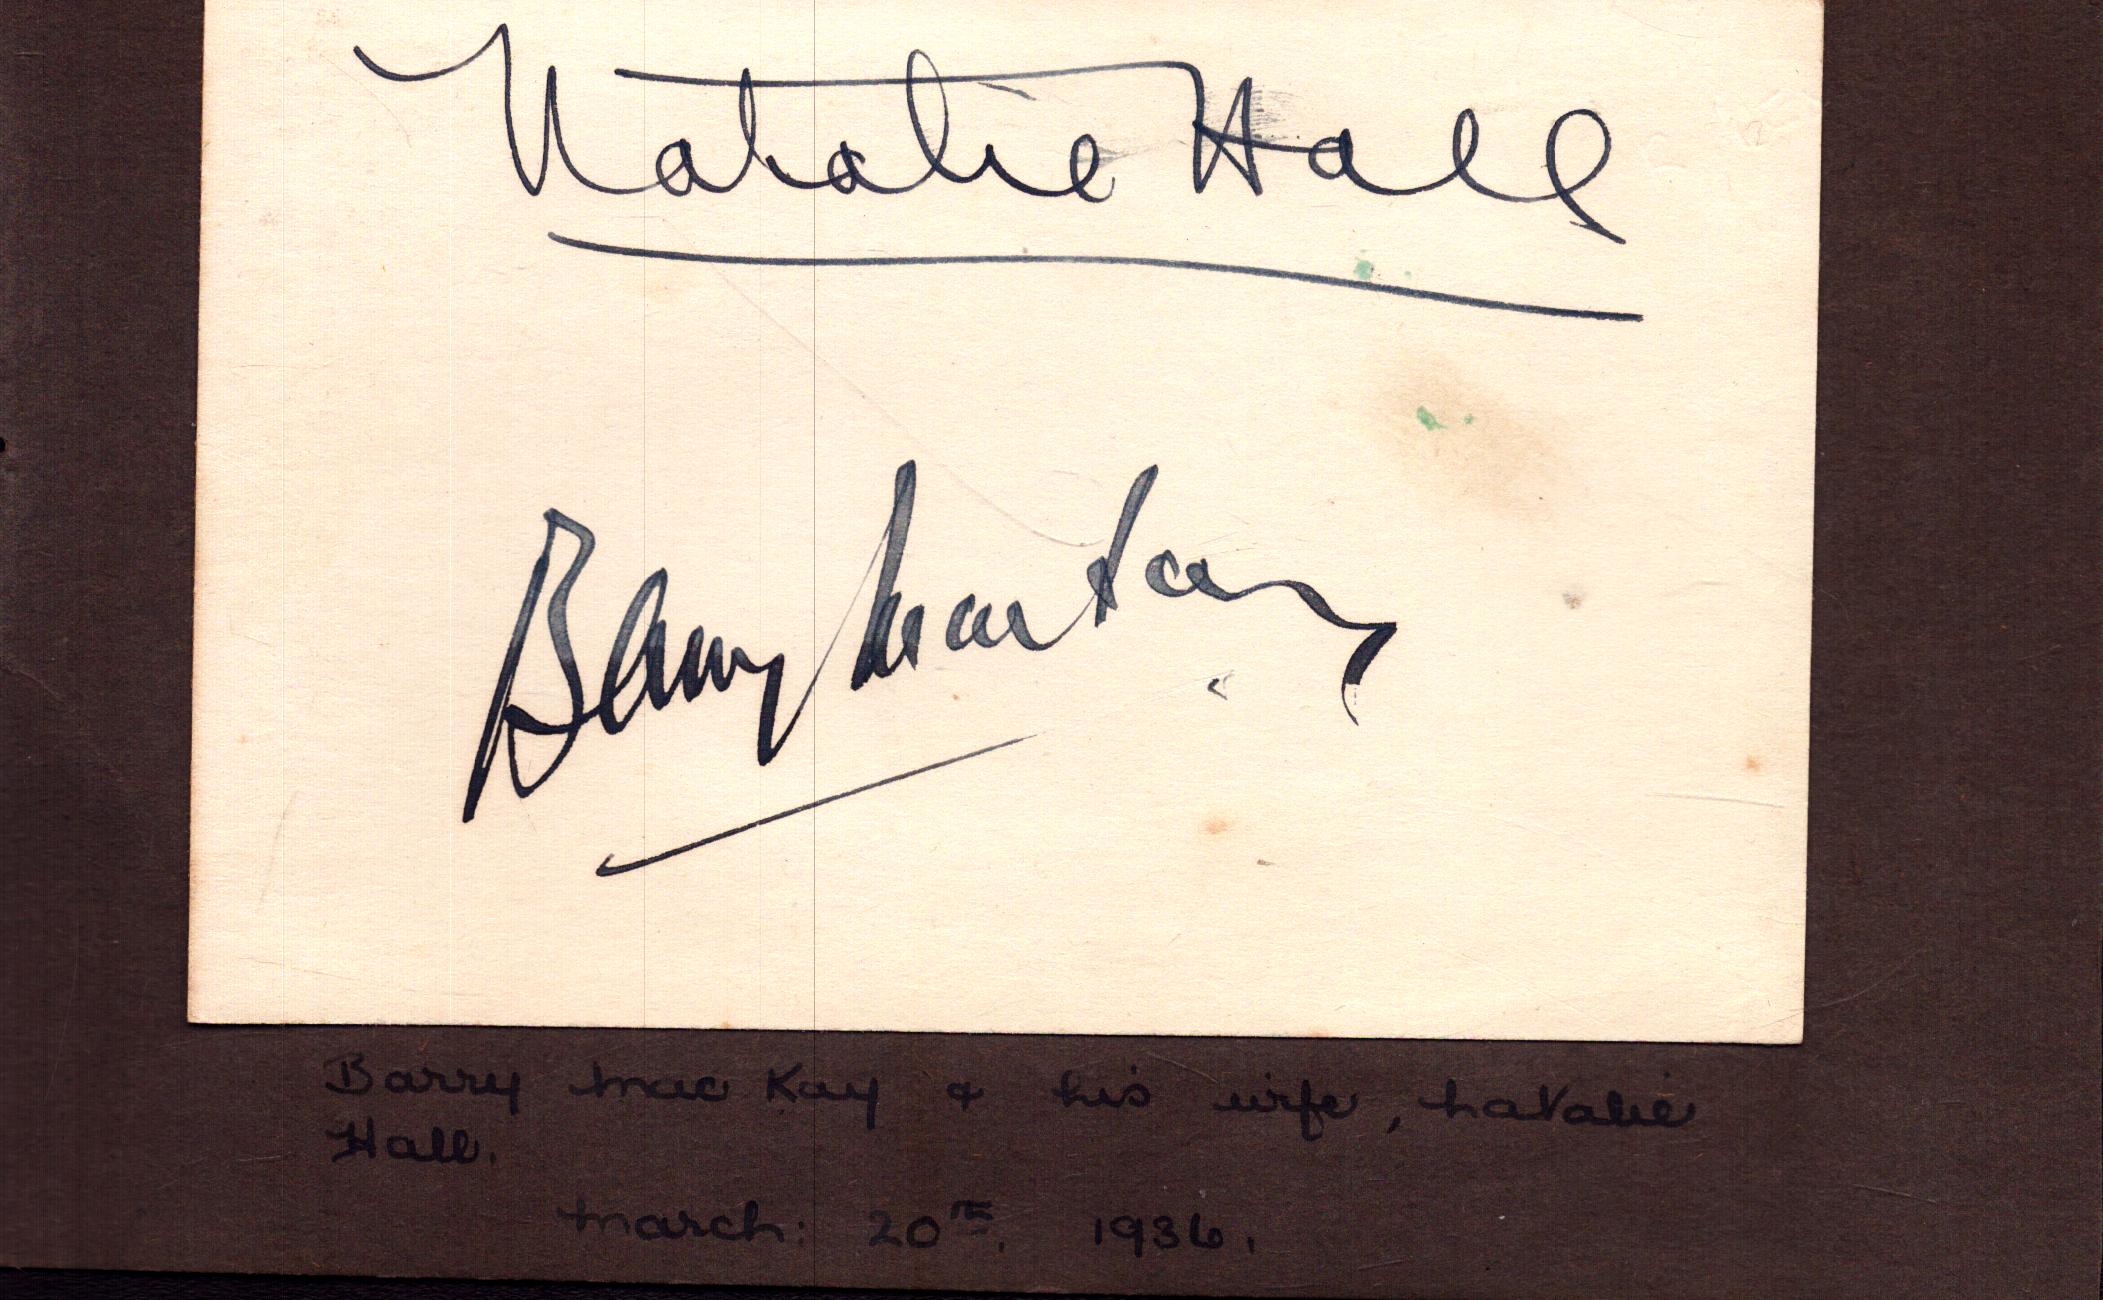 Natalie Hall
Barry Mackay
Barry Mac Kay & his wife, Natalie
Hall.
March: 20th. 1936.